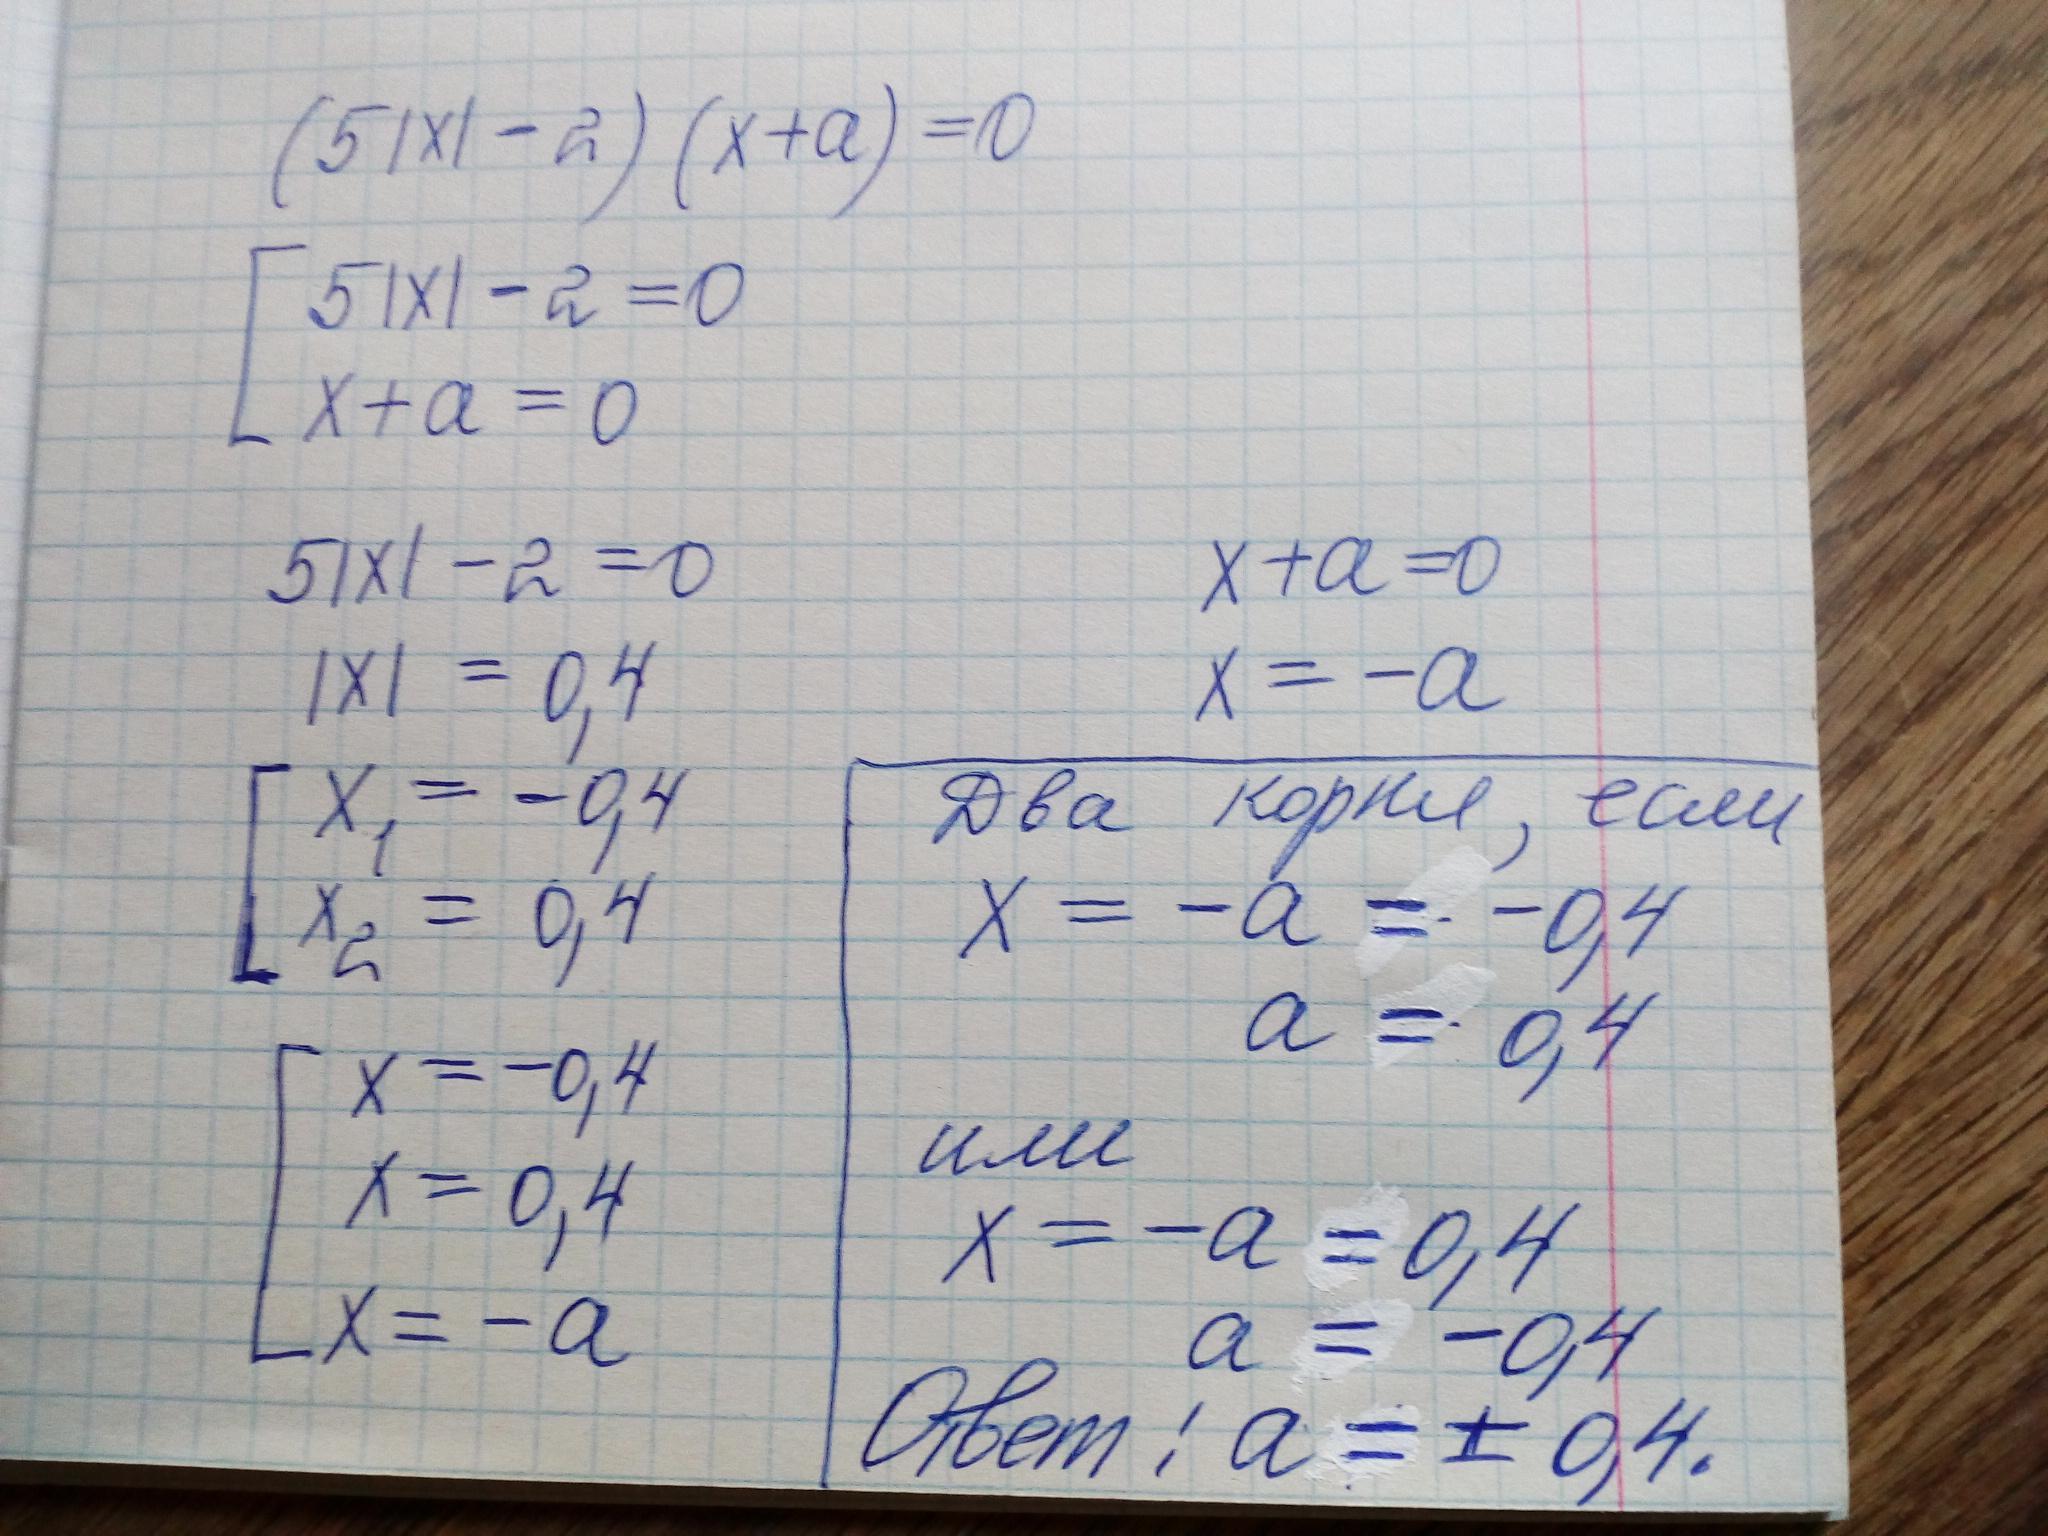 (5|x| - 2)(x+a) = 0
[ 5|x| - 2 = 0
x+a = 0
5|x| - 2 = 0
|x| = 0,4
[ x₁ = -0,4
x₂ = 0,4
[ x = -0,4
x = 0,4
x = -a
x+a = 0
x = -a
Два корня, если
x = -a = -0,4
a = 0,4
или
x = -a = 0,4
a = -0,4
Ответ: a = ± 0,4.